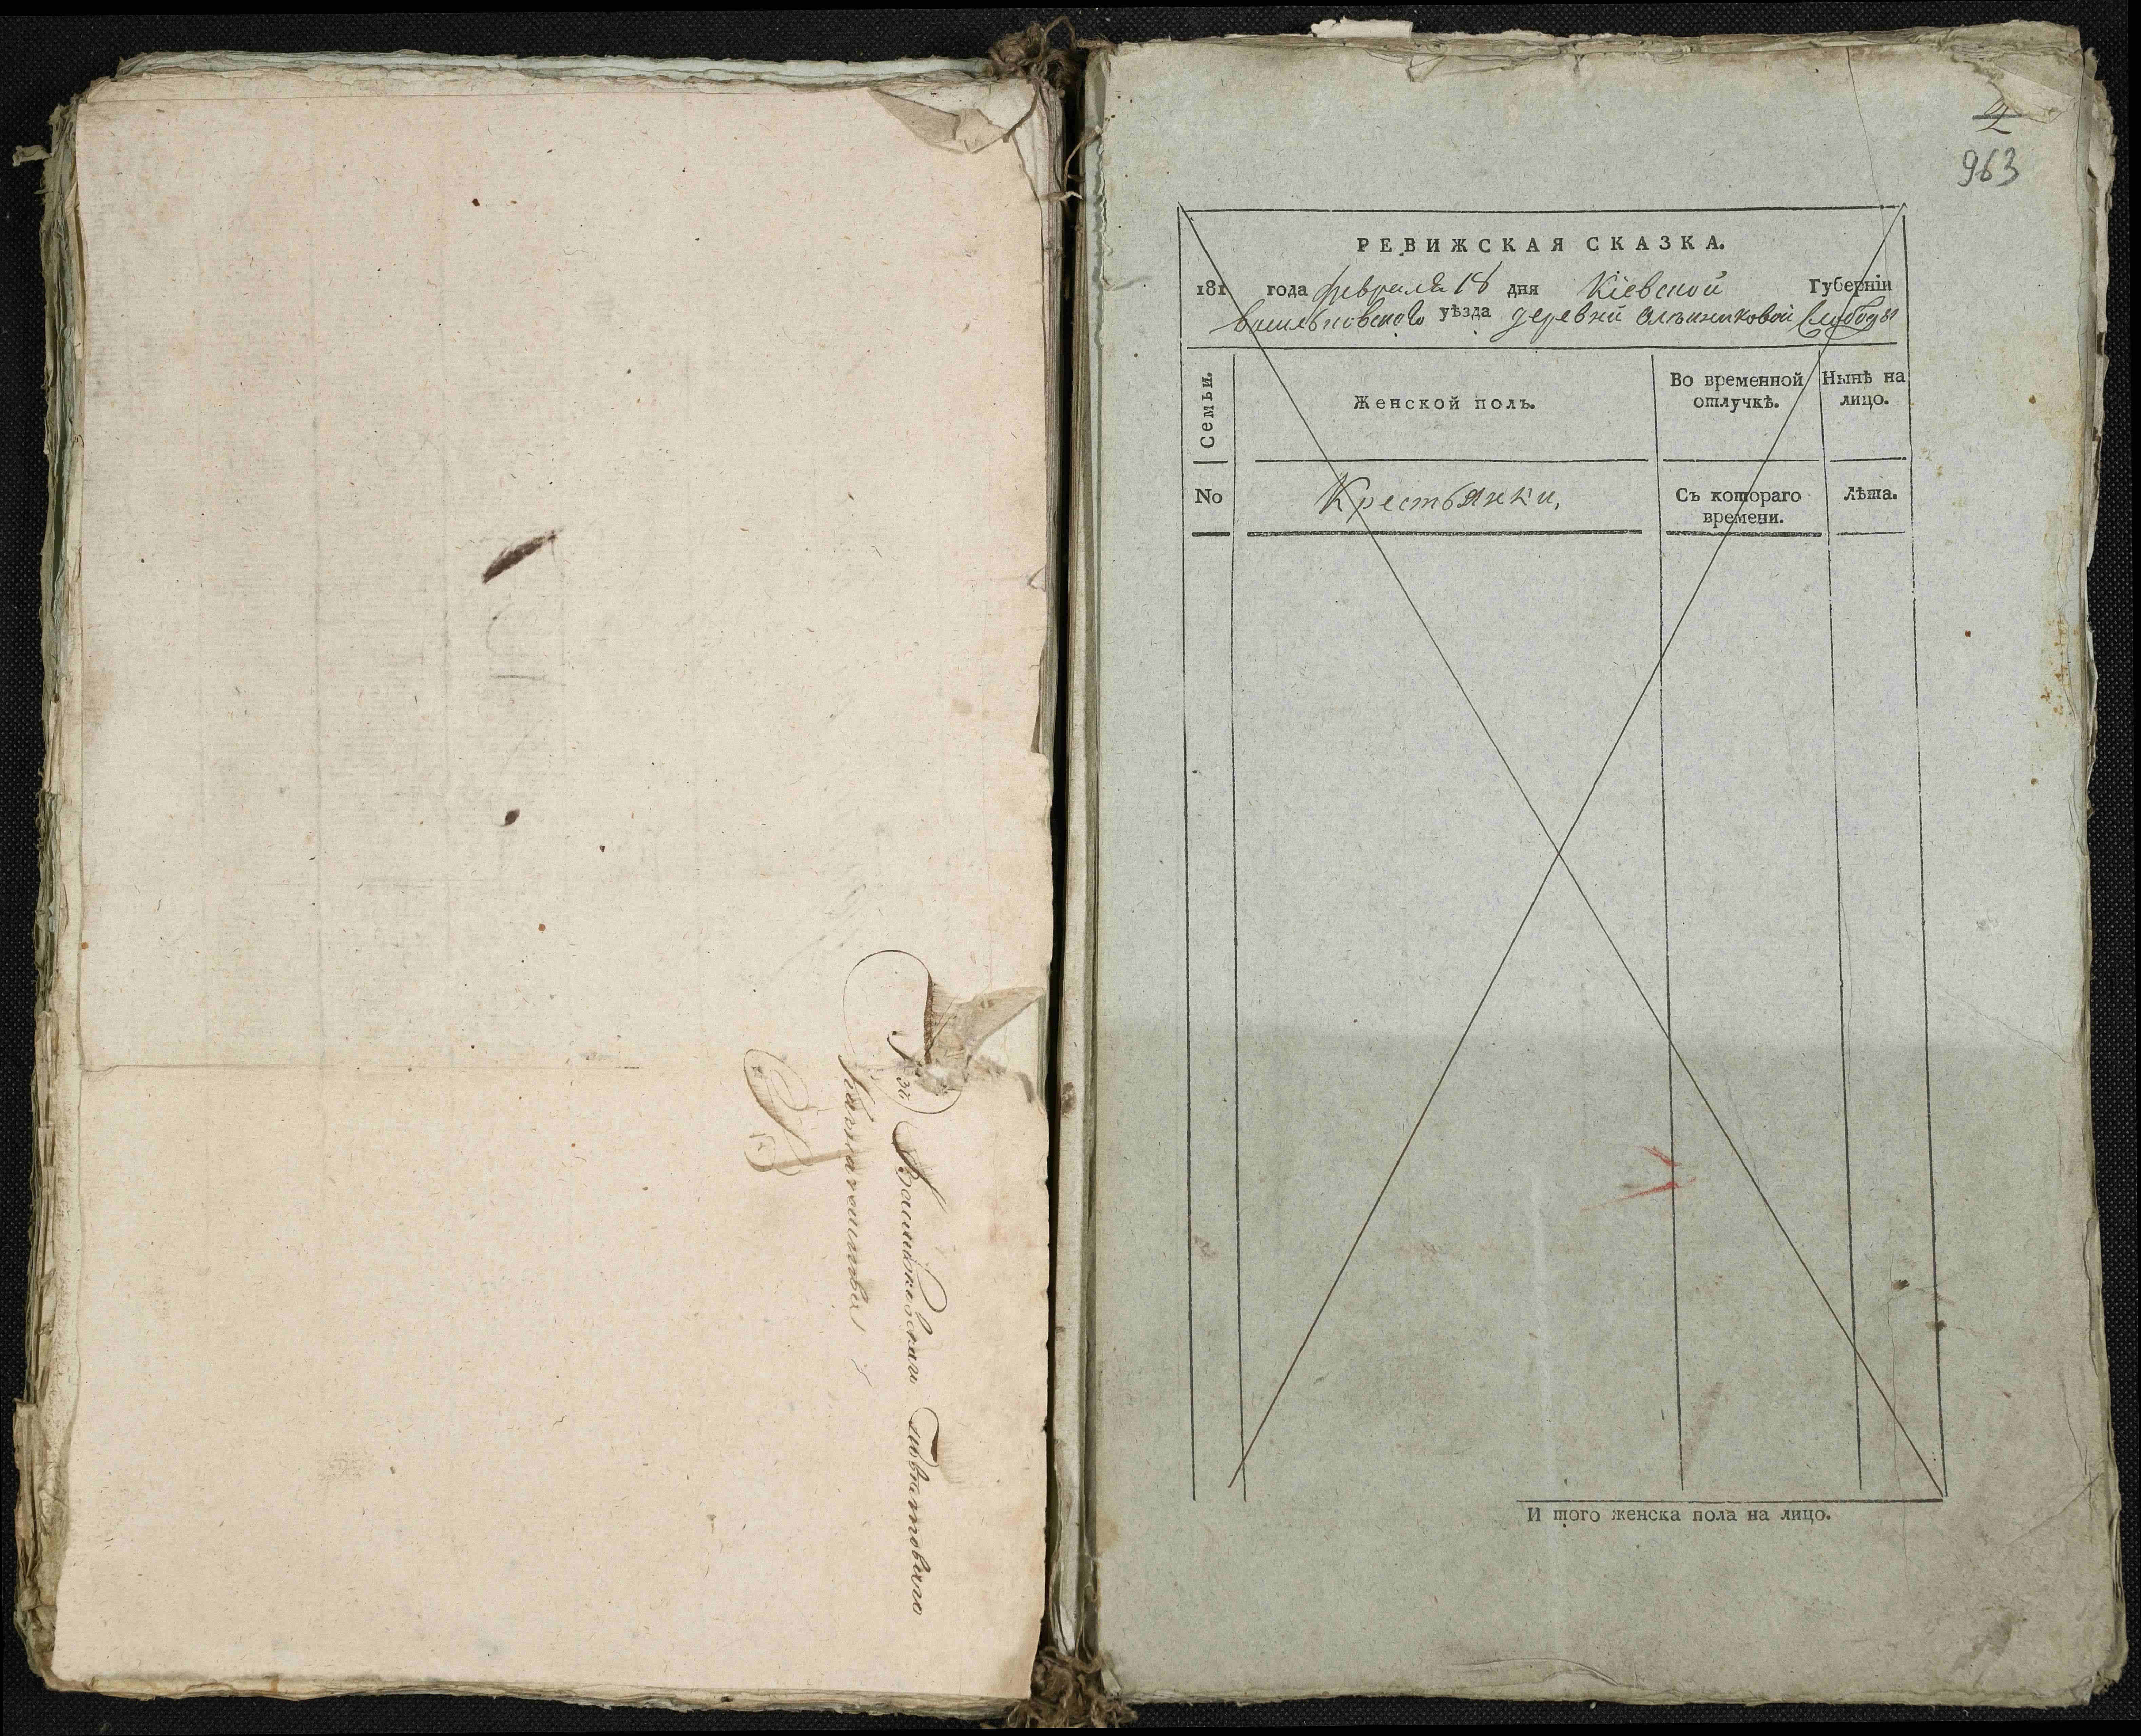 Васильковскаго
Повѣтовыго
Казначейства
2
963
РЕВИЖСКАЯ СКАЗКА.
181 года февраля 18 дня Кіевской Губерніи
васильковского уѣзда деревни Слободы
Семьи.
Женской полъ.
Во временной отлучкѣ.
Нынѣ на лицо.
No
Крестьянки,
Съ котораго времени.
Лѣта.
И того женска пола на лицо.